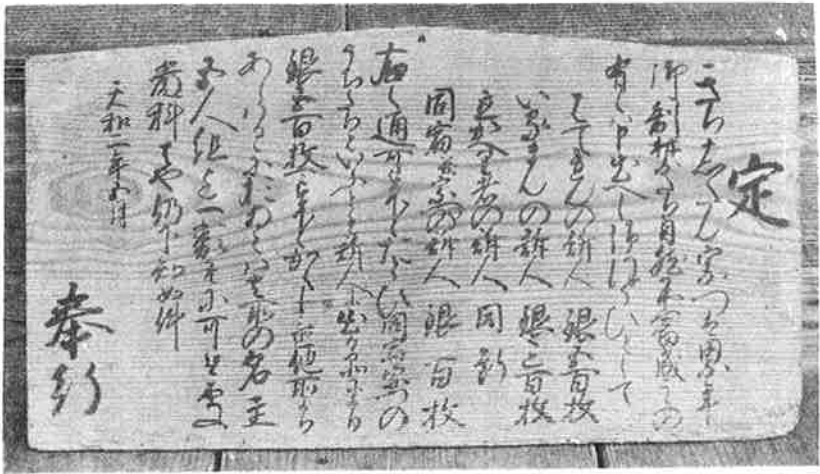 定
きりしたん宗門ハ累年
御制禁たり自然不審成もの
有之ハ申出へし御ほうひとして
はてれんの訴人　銀五百枚
いるまんの訴人　銀三百枚
立かへり者の訴人　同断
同宿并宗門の訴人　銀百枚
右之通可被下之たとひ同宿宗門の
うちたりといふとも訴人に出る品により
銀五百枚可被下之かくし置他所より
あらはるゝにおゐてハ其所の名主
五人組迄一類共ニ可被処
厳科者也仍下知如件
天和二年五月
奉行